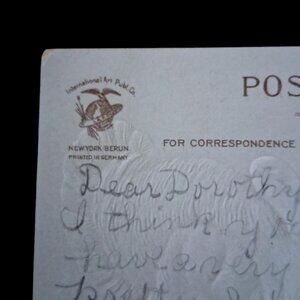 International Art Publ. Co.
NEW YORK/BERLIN
PRINTED IN GERMANY
POS
FOR CORRESPONDENCE
Dear Dorothy
I think yo
have a very